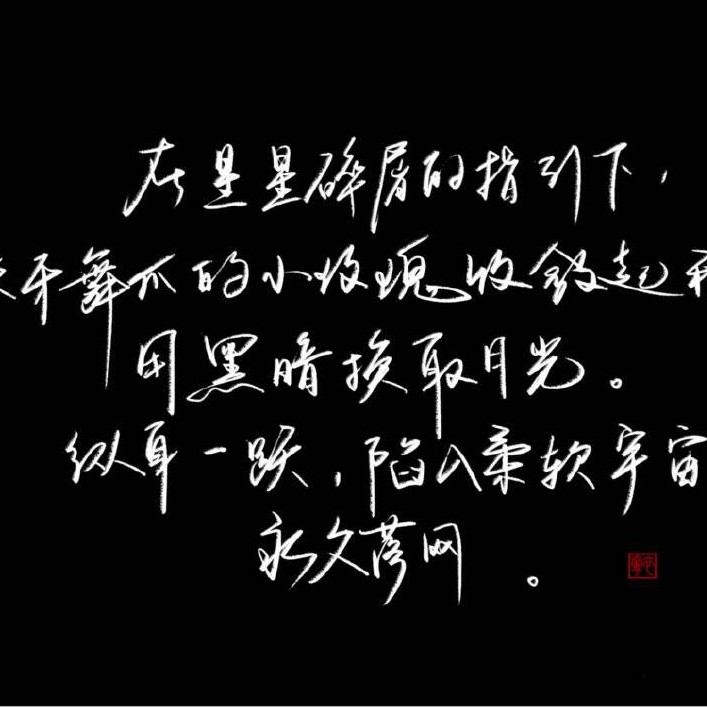 在星星碎屑的指引下，
牙舞爪的小玫瑰收敛起
用黑暗换取月光。
纵身一跃，陷入柔软宇宙
永久网。